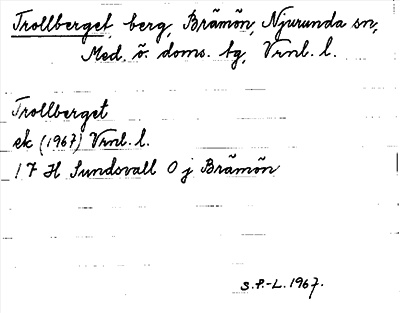 Trollberget, berg, Brämön, Njurunda sn,
Med. ö. doms. tg, Vrnl. l.
Trollberget
ek (1967) Vrnl. l.
17 H Sundsvall 0 j Brämön
S.P.-L. 1967.